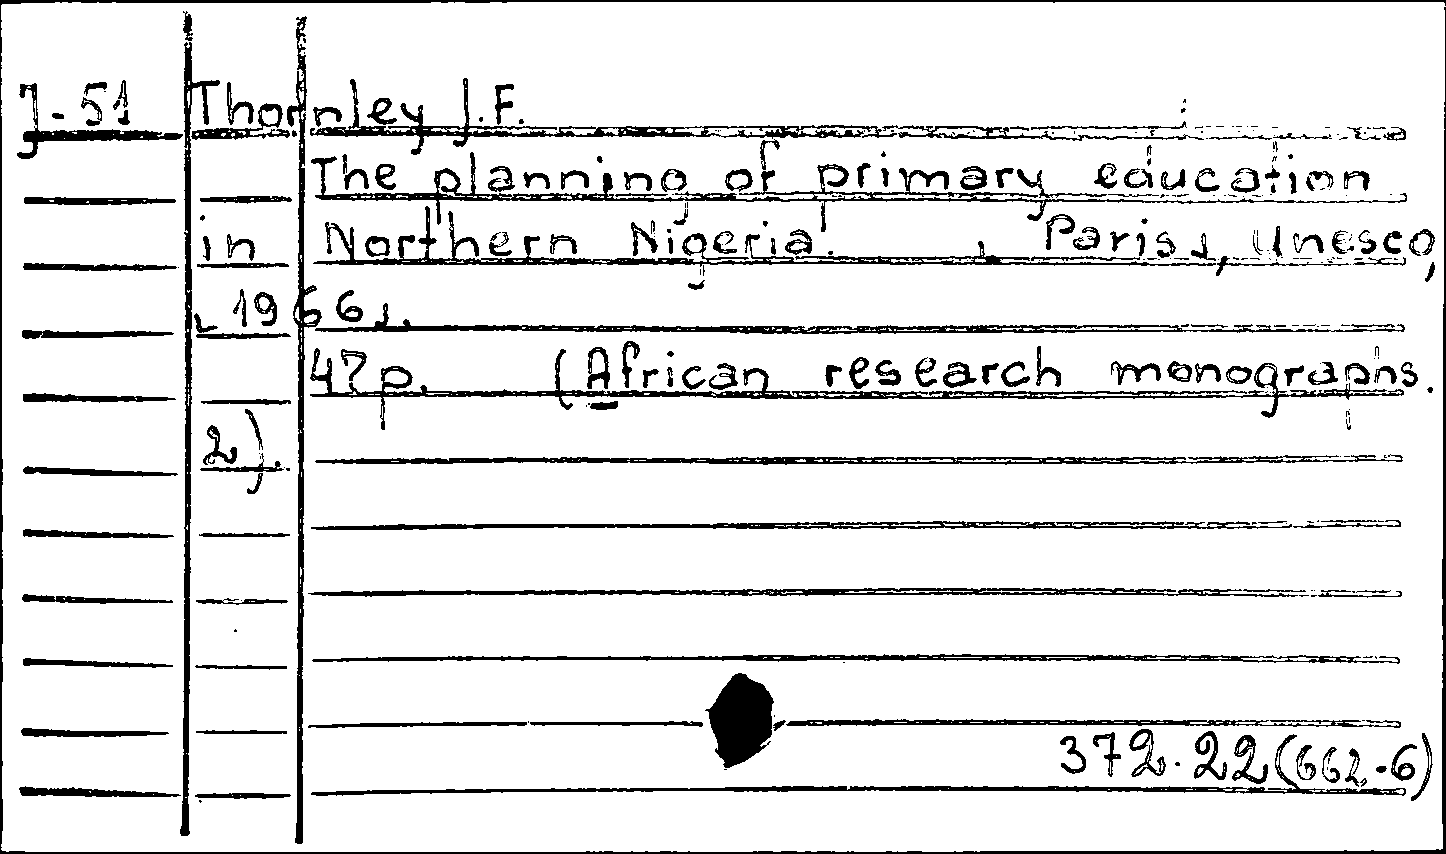 J-51 Thornley J.F.
The planning of primary education
in Northern Nigeria. [Paris], Unesco,
[1966].
47p. (African research monographs.
2).
372.22(662-6)